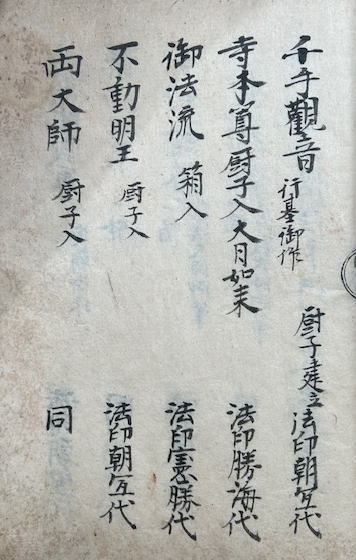 千手觀音 行基御作 厨子建立法印朝亙代
寺本尊厨子入大日如来 法印勝海代
御法流 箱入 法印憲勝代
不動明王 厨子入 法印朝亙代
両大師 厨子入 同